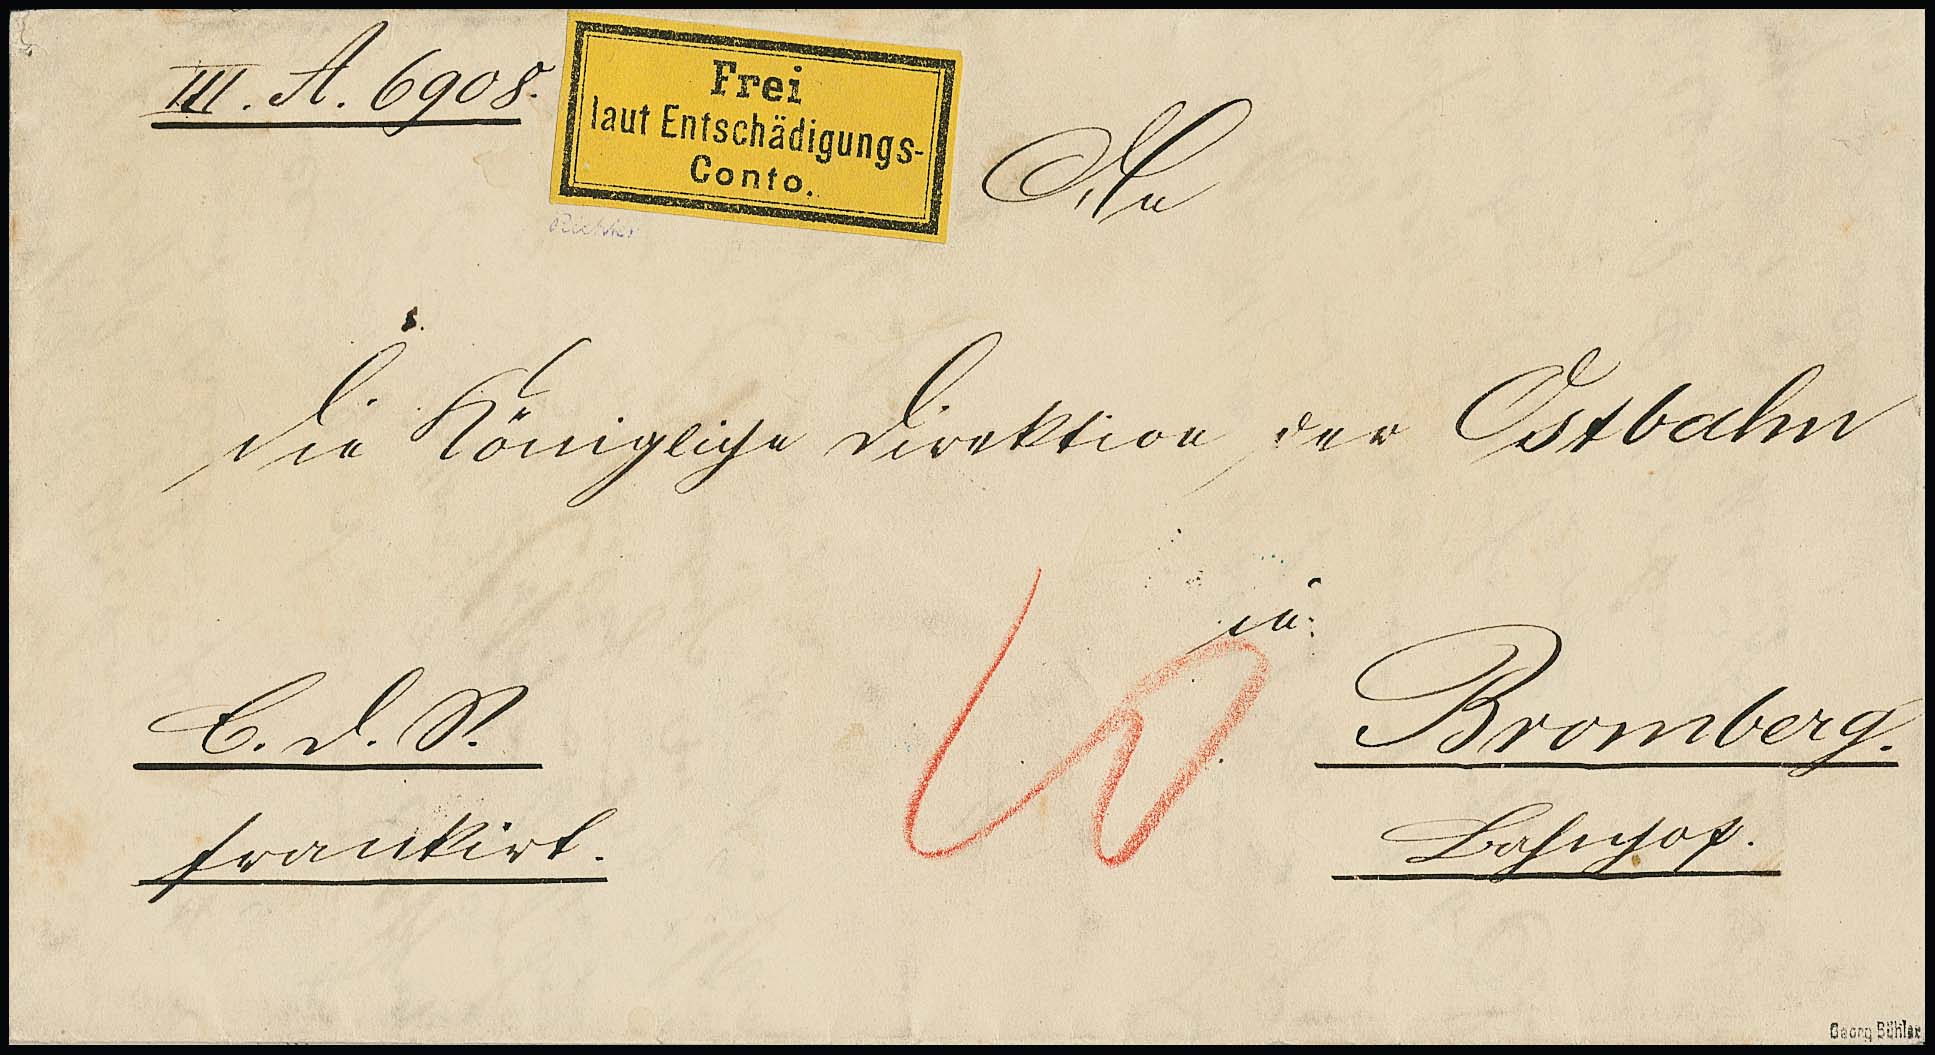 III. A. 6908.
Frei
laut Entschädigungs-
Conto.
An
die Königliche Direktion der Ostbahn
in
Bromberg.
Bahnhof.
E. d. S.
frankirt.
Georg Bühler